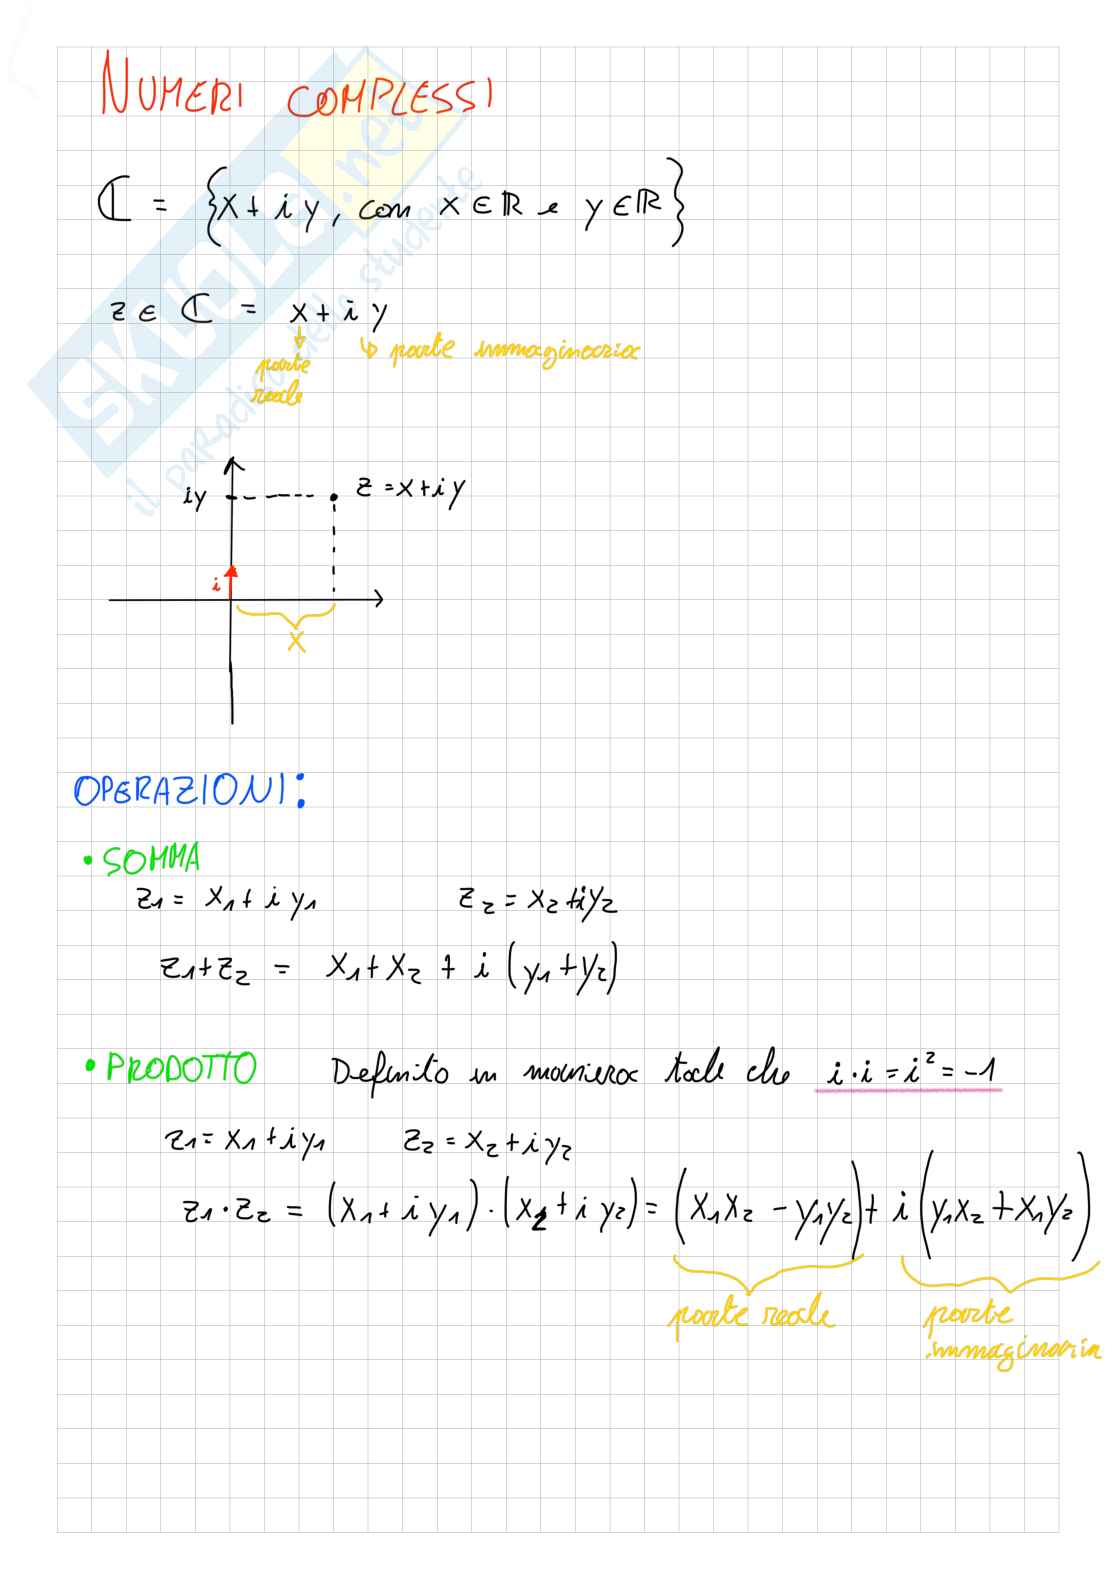 NUMERI COMPLESSI
ℂ = {x + iy, con x ∈ ℝ e y ∈ ℝ}
z ∈ ℂ = x + iy
↓ ↳ parte immaginaria
parte
reale
iy z = x + iy
i
x
OPERAZIONI:
• SOMMA
z₁ = x₁ + iy₁ z₂ = x₂ + iy₂
z₁ + z₂ = x₁ + x₂ + i(y₁ + y₂)
• PRODOTTO Definito in maniera tale che i · i = i² = -1
z₁ = x₁ + iy₁ z₂ = x₂ + iy₂
z₁ · z₂ = (x₁ + iy₁) · (x₂ + iy₂) = (x₁x₂ - y₁y₂) + i(y₁x₂ + x₁y₂)
parte reale parte
immaginaria
SKUOLA.net
il paradiso dello studente